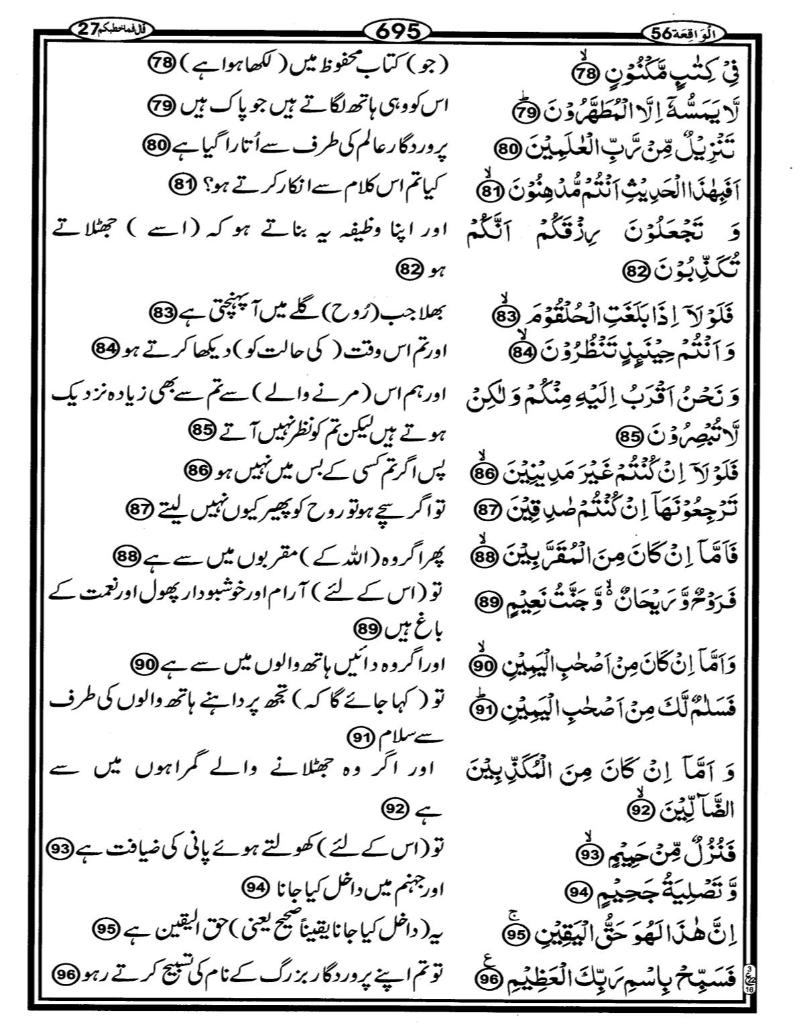 اَلْوَاقِعَة 56
695
قال فما خطبکم 27
فِیْ كِتٰبٍ مَّكْنُوْنٍ ۙ 78
(جو) کتاب محفوظ میں (لکھا ہوا ہے) 78
لَّا یَمَسُّهٗۤ اِلَّا الْمُطَهَّرُوْنَ ؕ 79
اس کو وہی ہاتھ لگاتے ہیں جو پاک ہیں 79
تَنْزِیْلٌ مِّنْ رَّبِّ الْعٰلَمِیْنَ 80
پروردگار عالم کی طرف سے اُتارا گیا ہے 80
اَفَبِهٰذَا الْحَدِیْثِ اَنْتُمْ مُّدْهِنُوْنَ ۙ 81
کیا تم اس کلام سے انکار کرتے ہو؟ 81
وَ تَجْعَلُوْنَ رِزْقَكُمْ اَنَّكُمْ
تُكَذِّبُوْنَ 82
اور اپنا وظیفہ یہ بناتے ہو کہ (اسے ) جھٹلاتے
ہو 82
فَلَوْ لَاۤ اِذَا بَلَغَتِ الْحُلْقُوْمَ ۙ 83
بھلا جب (رُوح) گلے میں آ پہنچتی ہے 83
وَ اَنْتُمْ حِیْنَىِٕذٍ تَنْظُرُوْنَ ۙ 84
اور تم اس وقت ( کی حالت کو) دیکھا کرتے ہو 84
وَ نَحْنُ اَقْرَبُ اِلَیْهِ مِنْكُمْ وَ لٰكِنْ
لَّا تُبْصِرُوْنَ 85
اور ہم اس (مرنے والے) سے تم سے بھی زیادہ نزدیک
ہوتے ہیں لیکن تم کو نظر نہیں آتے 85
فَلَوْ لَاۤ اِنْ كُنْتُمْ غَیْرَ مَدِیْنِیْنَ ۙ 86
پس اگر تم کسی کے بس میں نہیں ہو 86
تَرْجِعُوْنَهَاۤ اِنْ كُنْتُمْ صٰدِقِیْنَ 87
تو اگر سچے ہو تو روح کو پھیر کیوں نہیں لیتے 87
فَاَمَّاۤ اِنْ كَانَ مِنَ الْمُقَرَّبِیْنَ ۙ 88
پھر اگر وہ (اللہ کے) مقربوں میں سے ہے 88
فَرَوْحٌ وَّ رَیْحَانٌ ۙ۬ وَّ جَنَّتُ نَعِیْمٍ 89
تو (اس کے لئے) آرام اور خوشبودار پھول اور نعمت کے
باغ ہیں 89
وَ اَمَّاۤ اِنْ كَانَ مِنْ اَصْحٰبِ الْیَمِیْنِ ۙ 90
اور اگر وہ دائیں ہاتھ والوں میں سے ہے 90
فَسَلٰمٌ لَّكَ مِنْ اَصْحٰبِ الْیَمِیْنِ ؕ 91
تو ( کہا جائے گا کہ) تجھ پر داہنے ہاتھ والوں کی طرف
سے سلام 91
وَ اَمَّاۤ اِنْ كَانَ مِنَ الْمُكَذِّبِیْنَ
الضَّآلِّیْنَ ۙ 92
اور اگر وہ جھٹلانے والے گمراہوں میں سے
ہے 92
فَنُزُلٌ مِّنْ حَمِیْمٍ ۙ 93
تو (اس کے لئے) کھولتے ہوئے پانی کی ضیافت ہے 93
وَّ تَصْلِیَةُ جَحِیْمٍ 94
اور جہنم میں داخل کیا جانا 94
اِنَّ هٰذَا لَهُوَ حَقُّ الْیَقِیْنِ ۚ 95
یہ (داخل کیا جانا یقیناً صحیح یعنی) حق الیقین ہے 95
فَسَبِّحْ بِاسْمِ رَبِّكَ الْعَظِیْمِ ۠ 96
تو تم اپنے پروردگار بزرگ کے نام کی تسبیح کرتے رہو 96